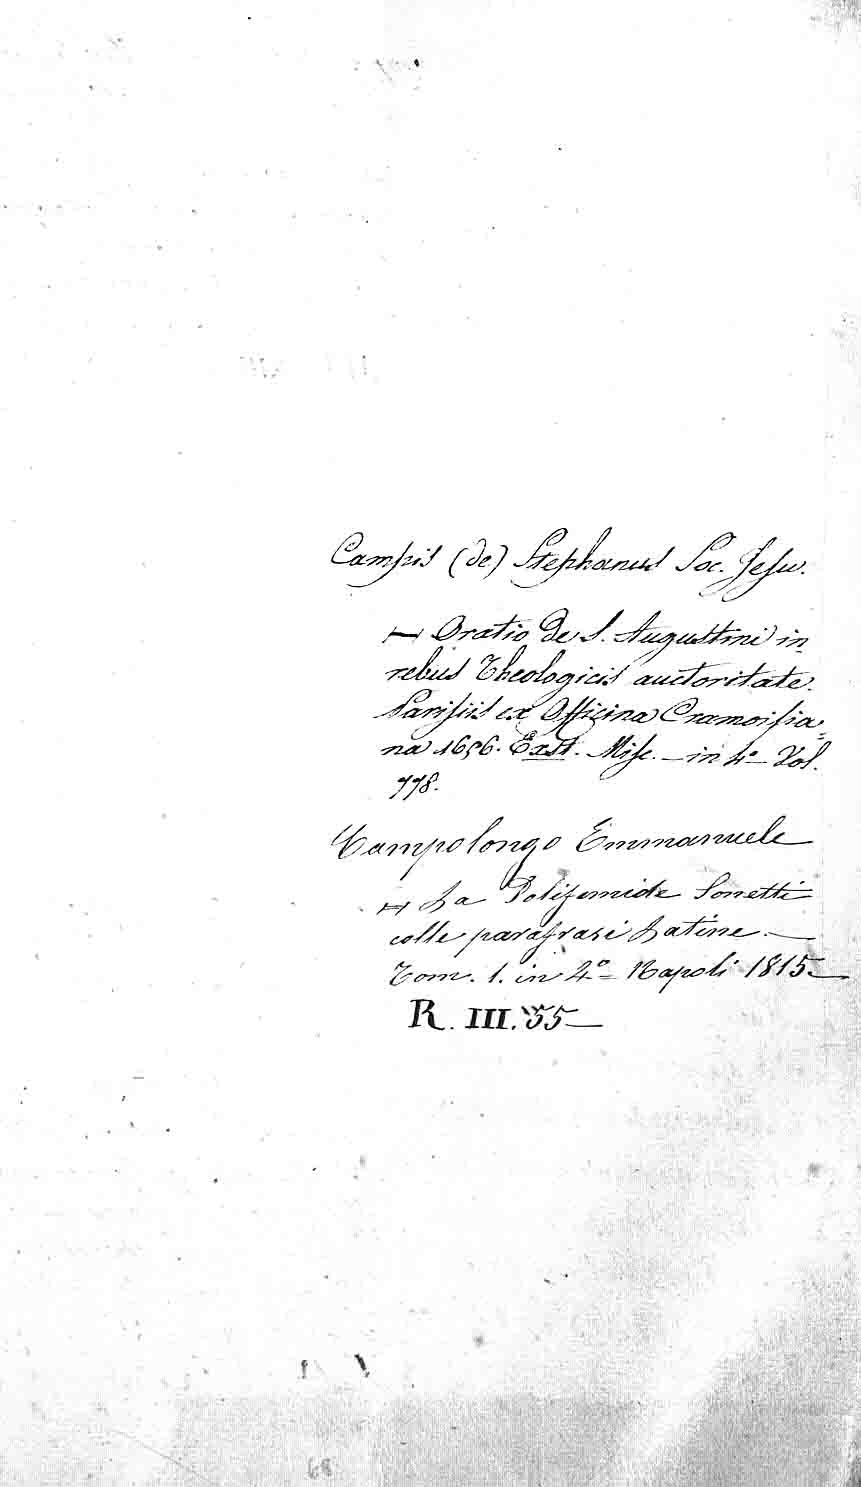 Campis (de) Stephanus Soc. Jesu.
— Oratio de S. Augustini in
rebus Theologicis auctoritate.
Parisiis ex Officina Cramoisia=
na 1656. Exst. Misc. — in 4° Vol.
778.
Campolongo Emmanuele
— La Polifemide Sonetti
colle parafrasi Latine. —
Tom. 1. in 4° = Napoli 1815 —
R. III. 55 —